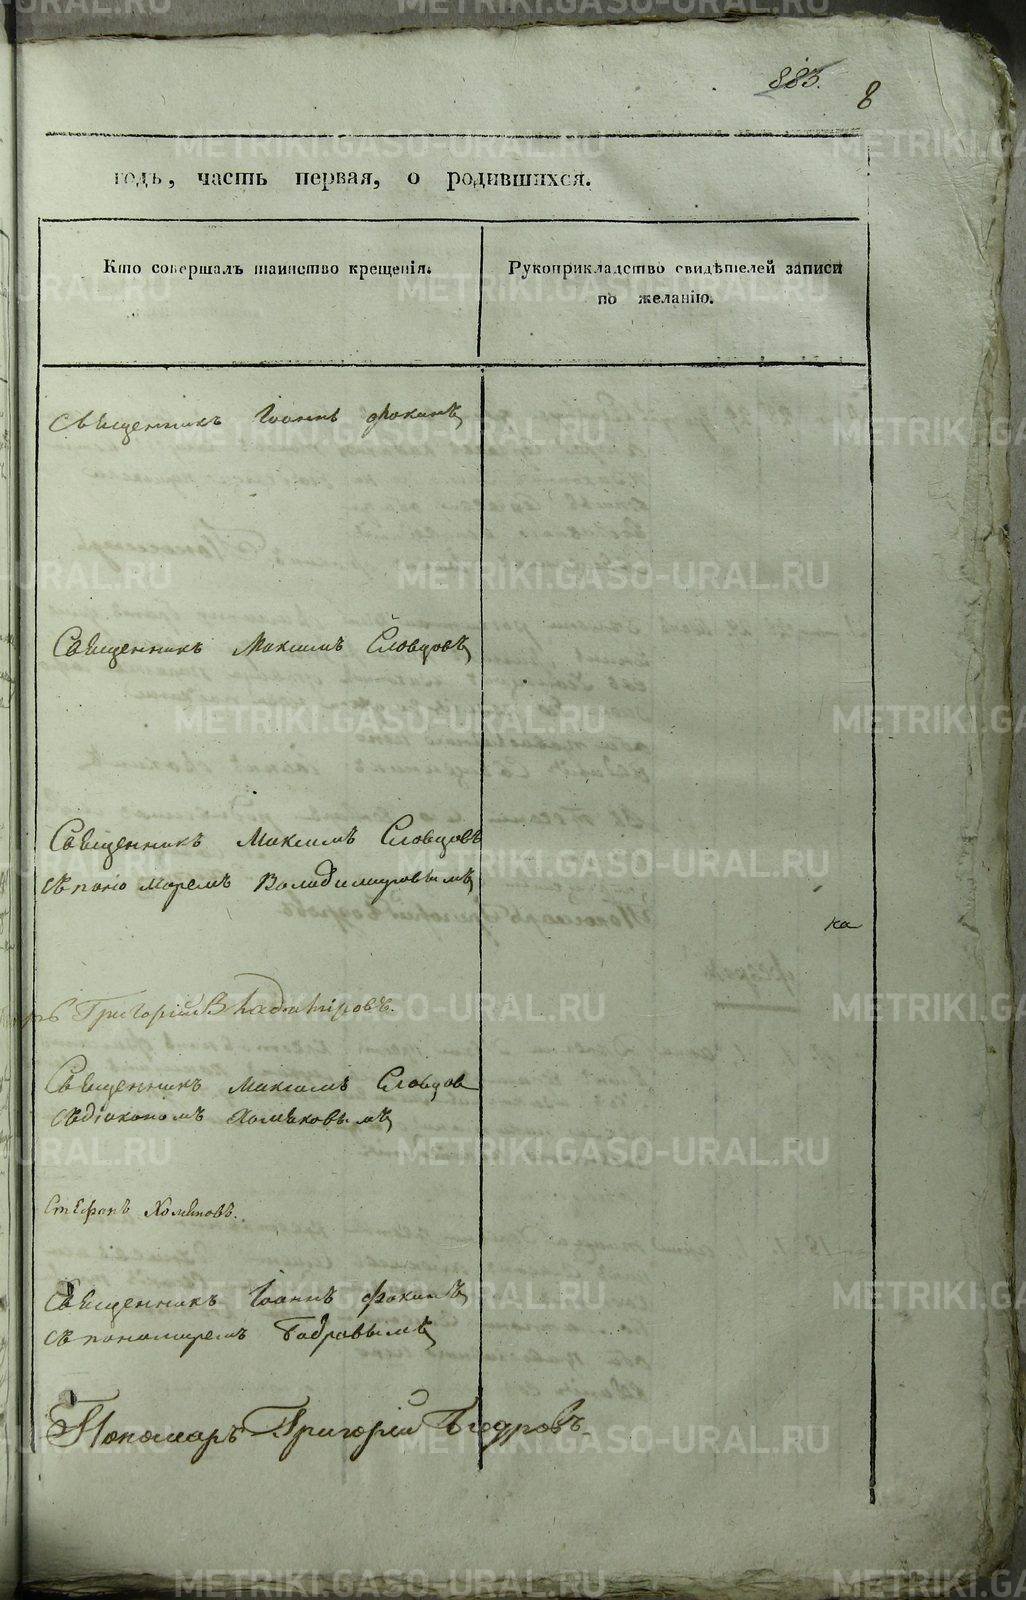 883.
8
годъ, часть первая, о родившихся.
Кто совершалъ таинство крещенія.
Рукоприкладство свидѣтелей записи
по желанію.
Священникъ Іоаннъ Фокинъ
Священникъ Максимъ Словцовъ
Священникъ Максимъ Словцовъ
съ пономаремъ Володимировымъ
ка
ръ Григорій Владимировъ.
Священникъ Максимъ Словцов
съ діакономъ Хомяковымъ
Стефанъ Хомяковъ.
Священникъ Іоаннъ Фокинъ
съ пономаремъ
Пономаръ Григорій
METRIKI.GASO-URAL.RU